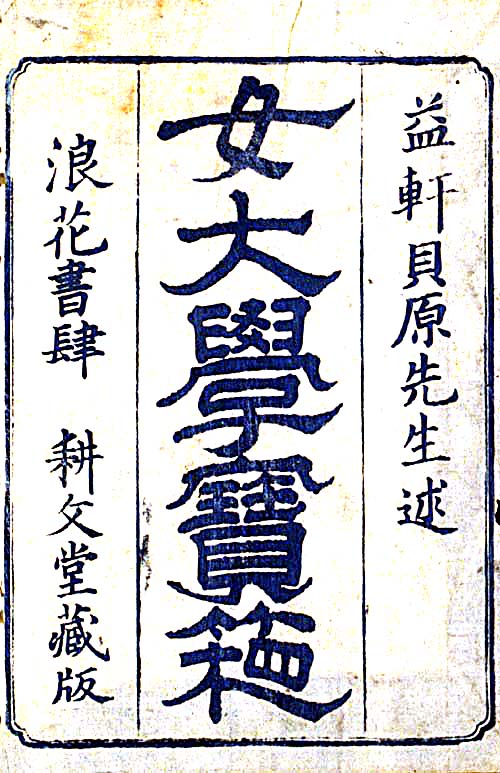 益軒貝原先生述
女大學寶箱
浪花書肆　耕文堂藏版